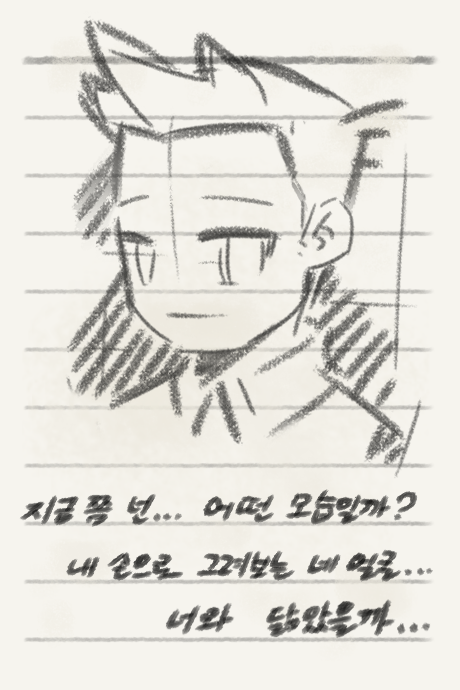 지금쯤 넌... 어떤 모습일까?
내 손으로 그려보는 네 얼굴...
너와 닮았을까...